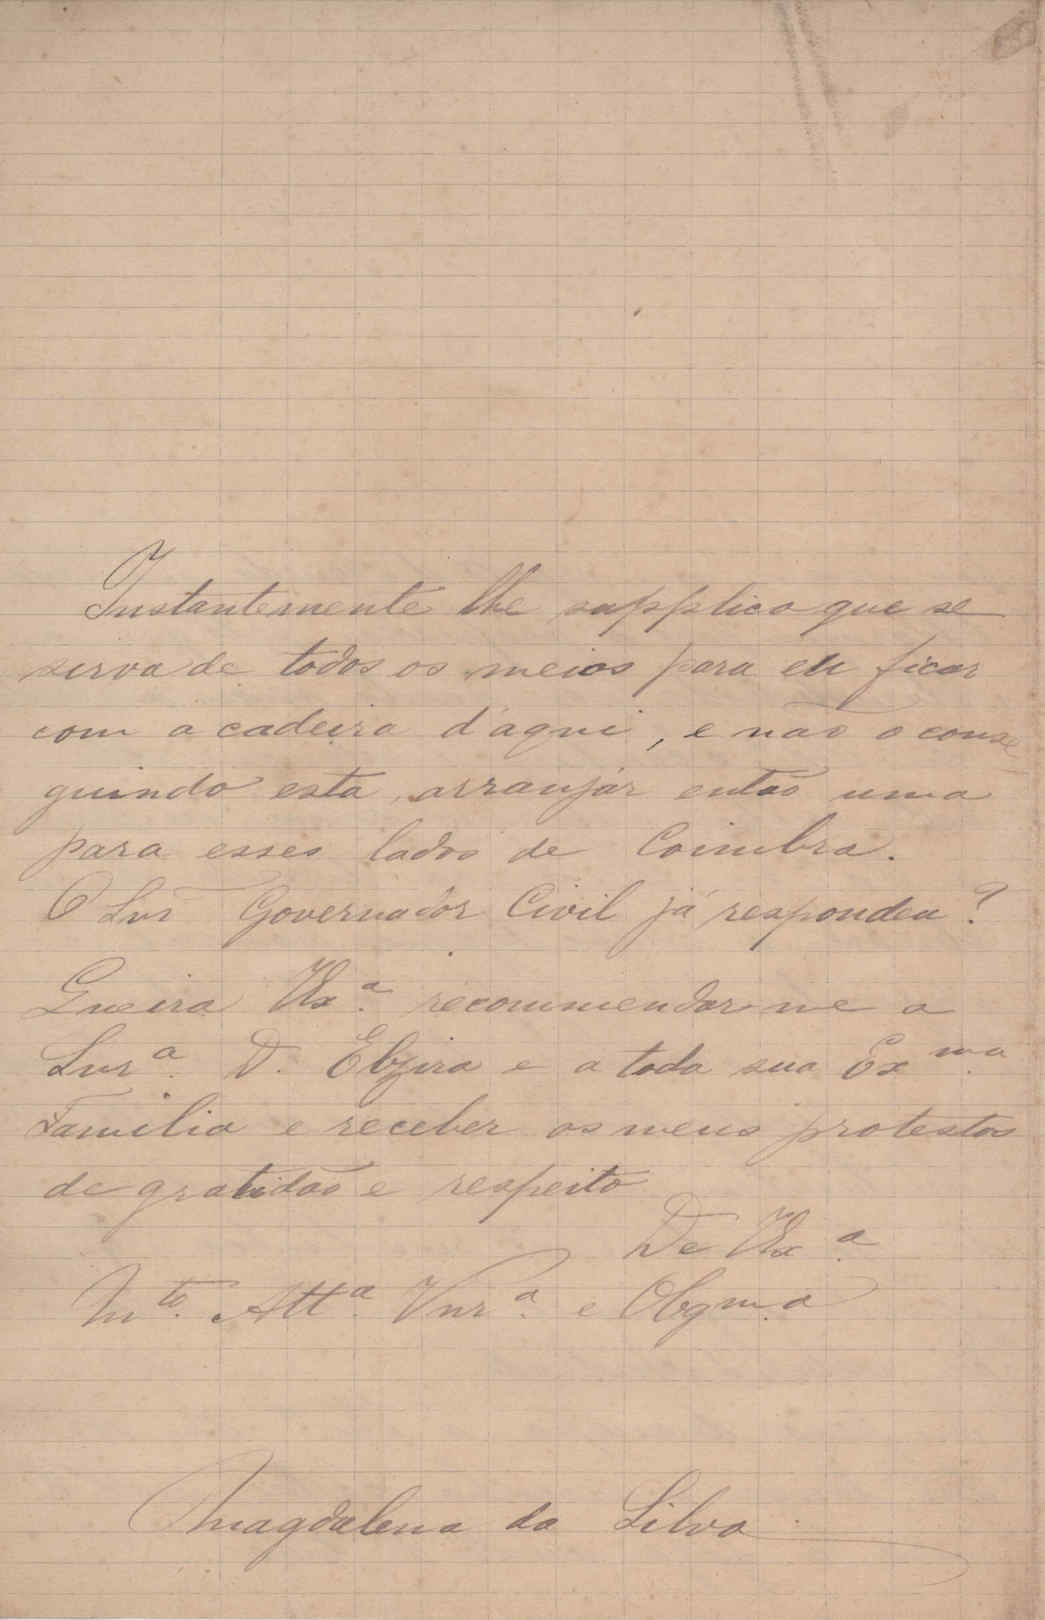 Instantemente lhe supplico que se
sirva de todos os meios para eu ficar
com a cadeira d'aqui, e não o conse
guindo esta, arranjar então uma
para esses lados de Coimbra.
O Snr Governador Civil já respondeu?
Queira V Ex.ª recommendar-me a
Snr.ª D. Elzira e a toda sua Ex.ma
Familia e receber os meus protestos
de gratidão e respeito
De V Ex.ª
M.to Att.ª Vnr.ª e Obgm.a
Magdalena da Silva